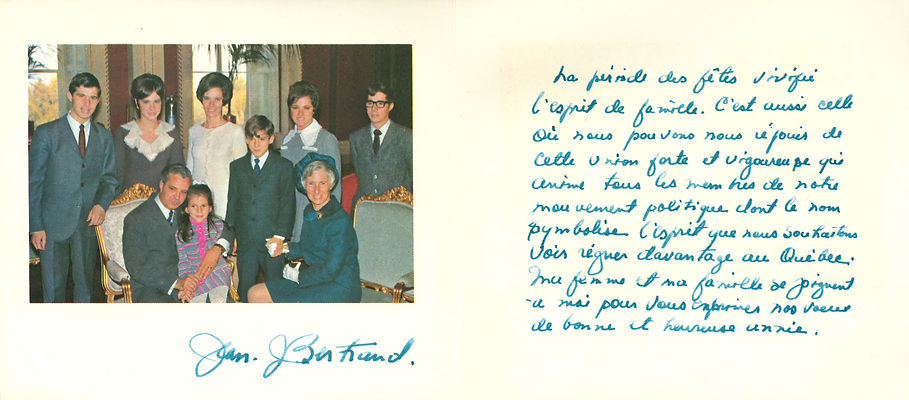 Jean-J Bertrand.
La période des fêtes vivifie
l'esprit de famille. C'est aussi celle
où nous pouvons nous réjouir de
cette union forte et vigoureuse qui
anime tous les membres de notre
mouvement politique dont le nom
symbolise l'esprit que nous souhaitons
voir régner davantage au Québec.
Ma femme et ma famille se joignent
à moi pour vous exprimer nos voeux
de bonne et heureuse année.